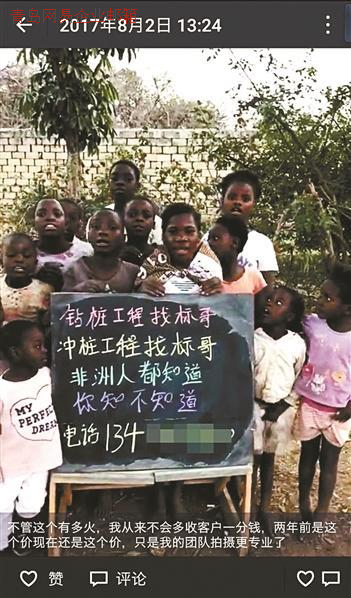 青岛网易企业邮箱
2017年8月2日 13:24
钻桩工程找标哥
冲桩工程找标哥
非洲人都知道
你知不知道
电话134
MY
PERFECT
DREAM
不管这个有多火，我从来不会多收客户一分钱，两年前是这
个价现在还是这个价，只是我的团队拍摄更专业了
赞 评论